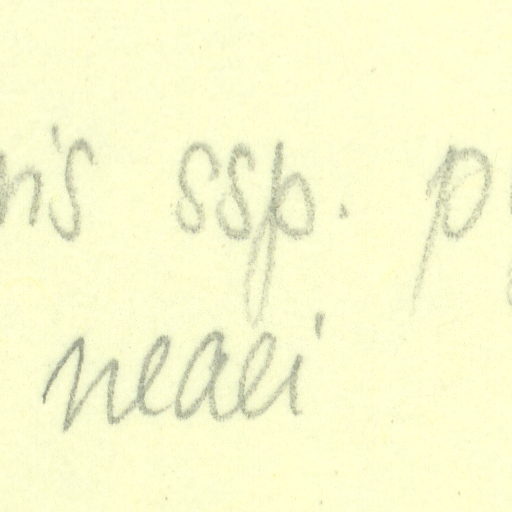 ris ssp. p
neaei